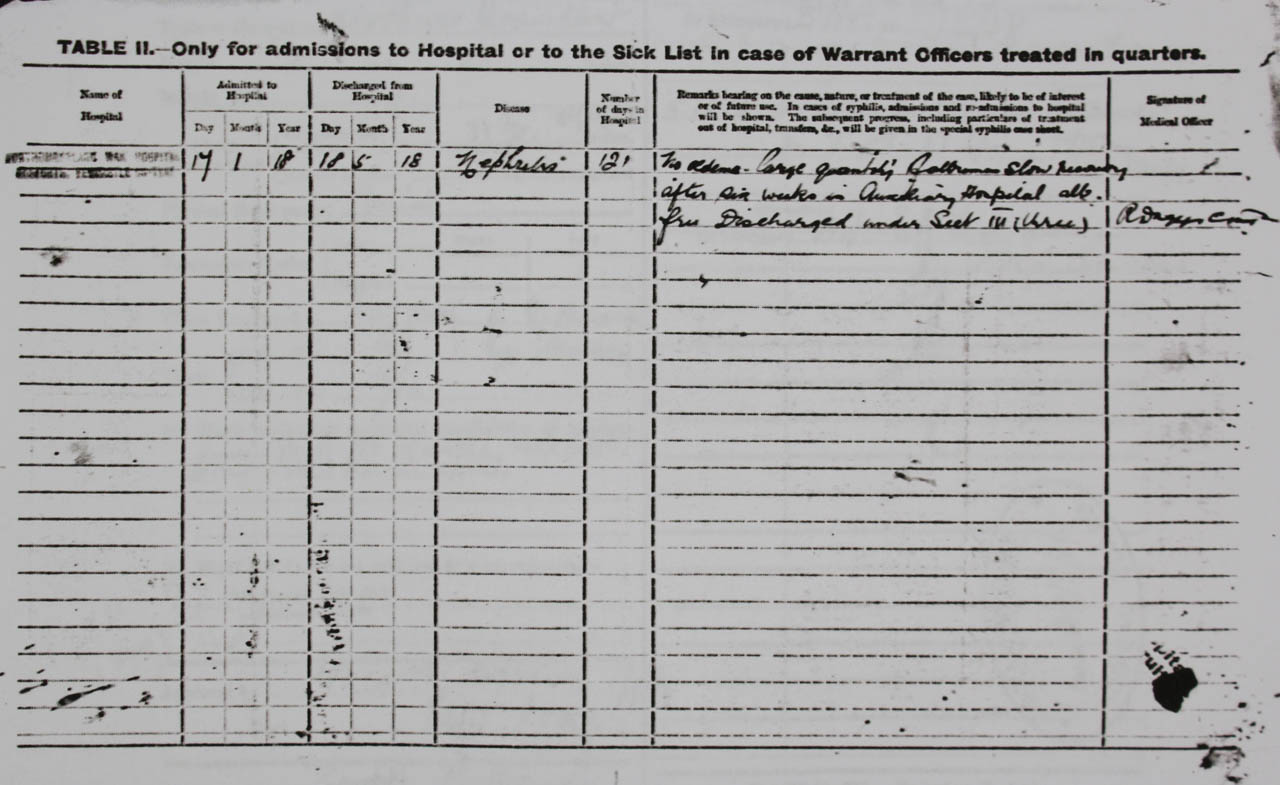 TABLE II.—Only for admissions to Hospital or to the Sick List in case of Warrant Officers treated in quarters.
Name of
Hospital
Admitted to
Hospital
Discharged from
Hospital
Day Month Year Day Month Year
Disease
Number
of days in
Hospital
Remarks bearing on the cause, nature, or treatment of the case, likely to be of interest
or of future use. In cases of syphilis, admissions and re-admissions to hospital
will be shown. The subsequent progress, including particulars of treatment
out of hospital, transfers, &c., will be given in the special syphilis case sheet.
Signature of
Medical Officer
WAR HOSPITAL 17 1 18 18 5 18 Nephritis 121 No edema - large quantity Slow recovery
after six weeks in Auxiliary Hospital alb.
free Discharged under Sect III (three)